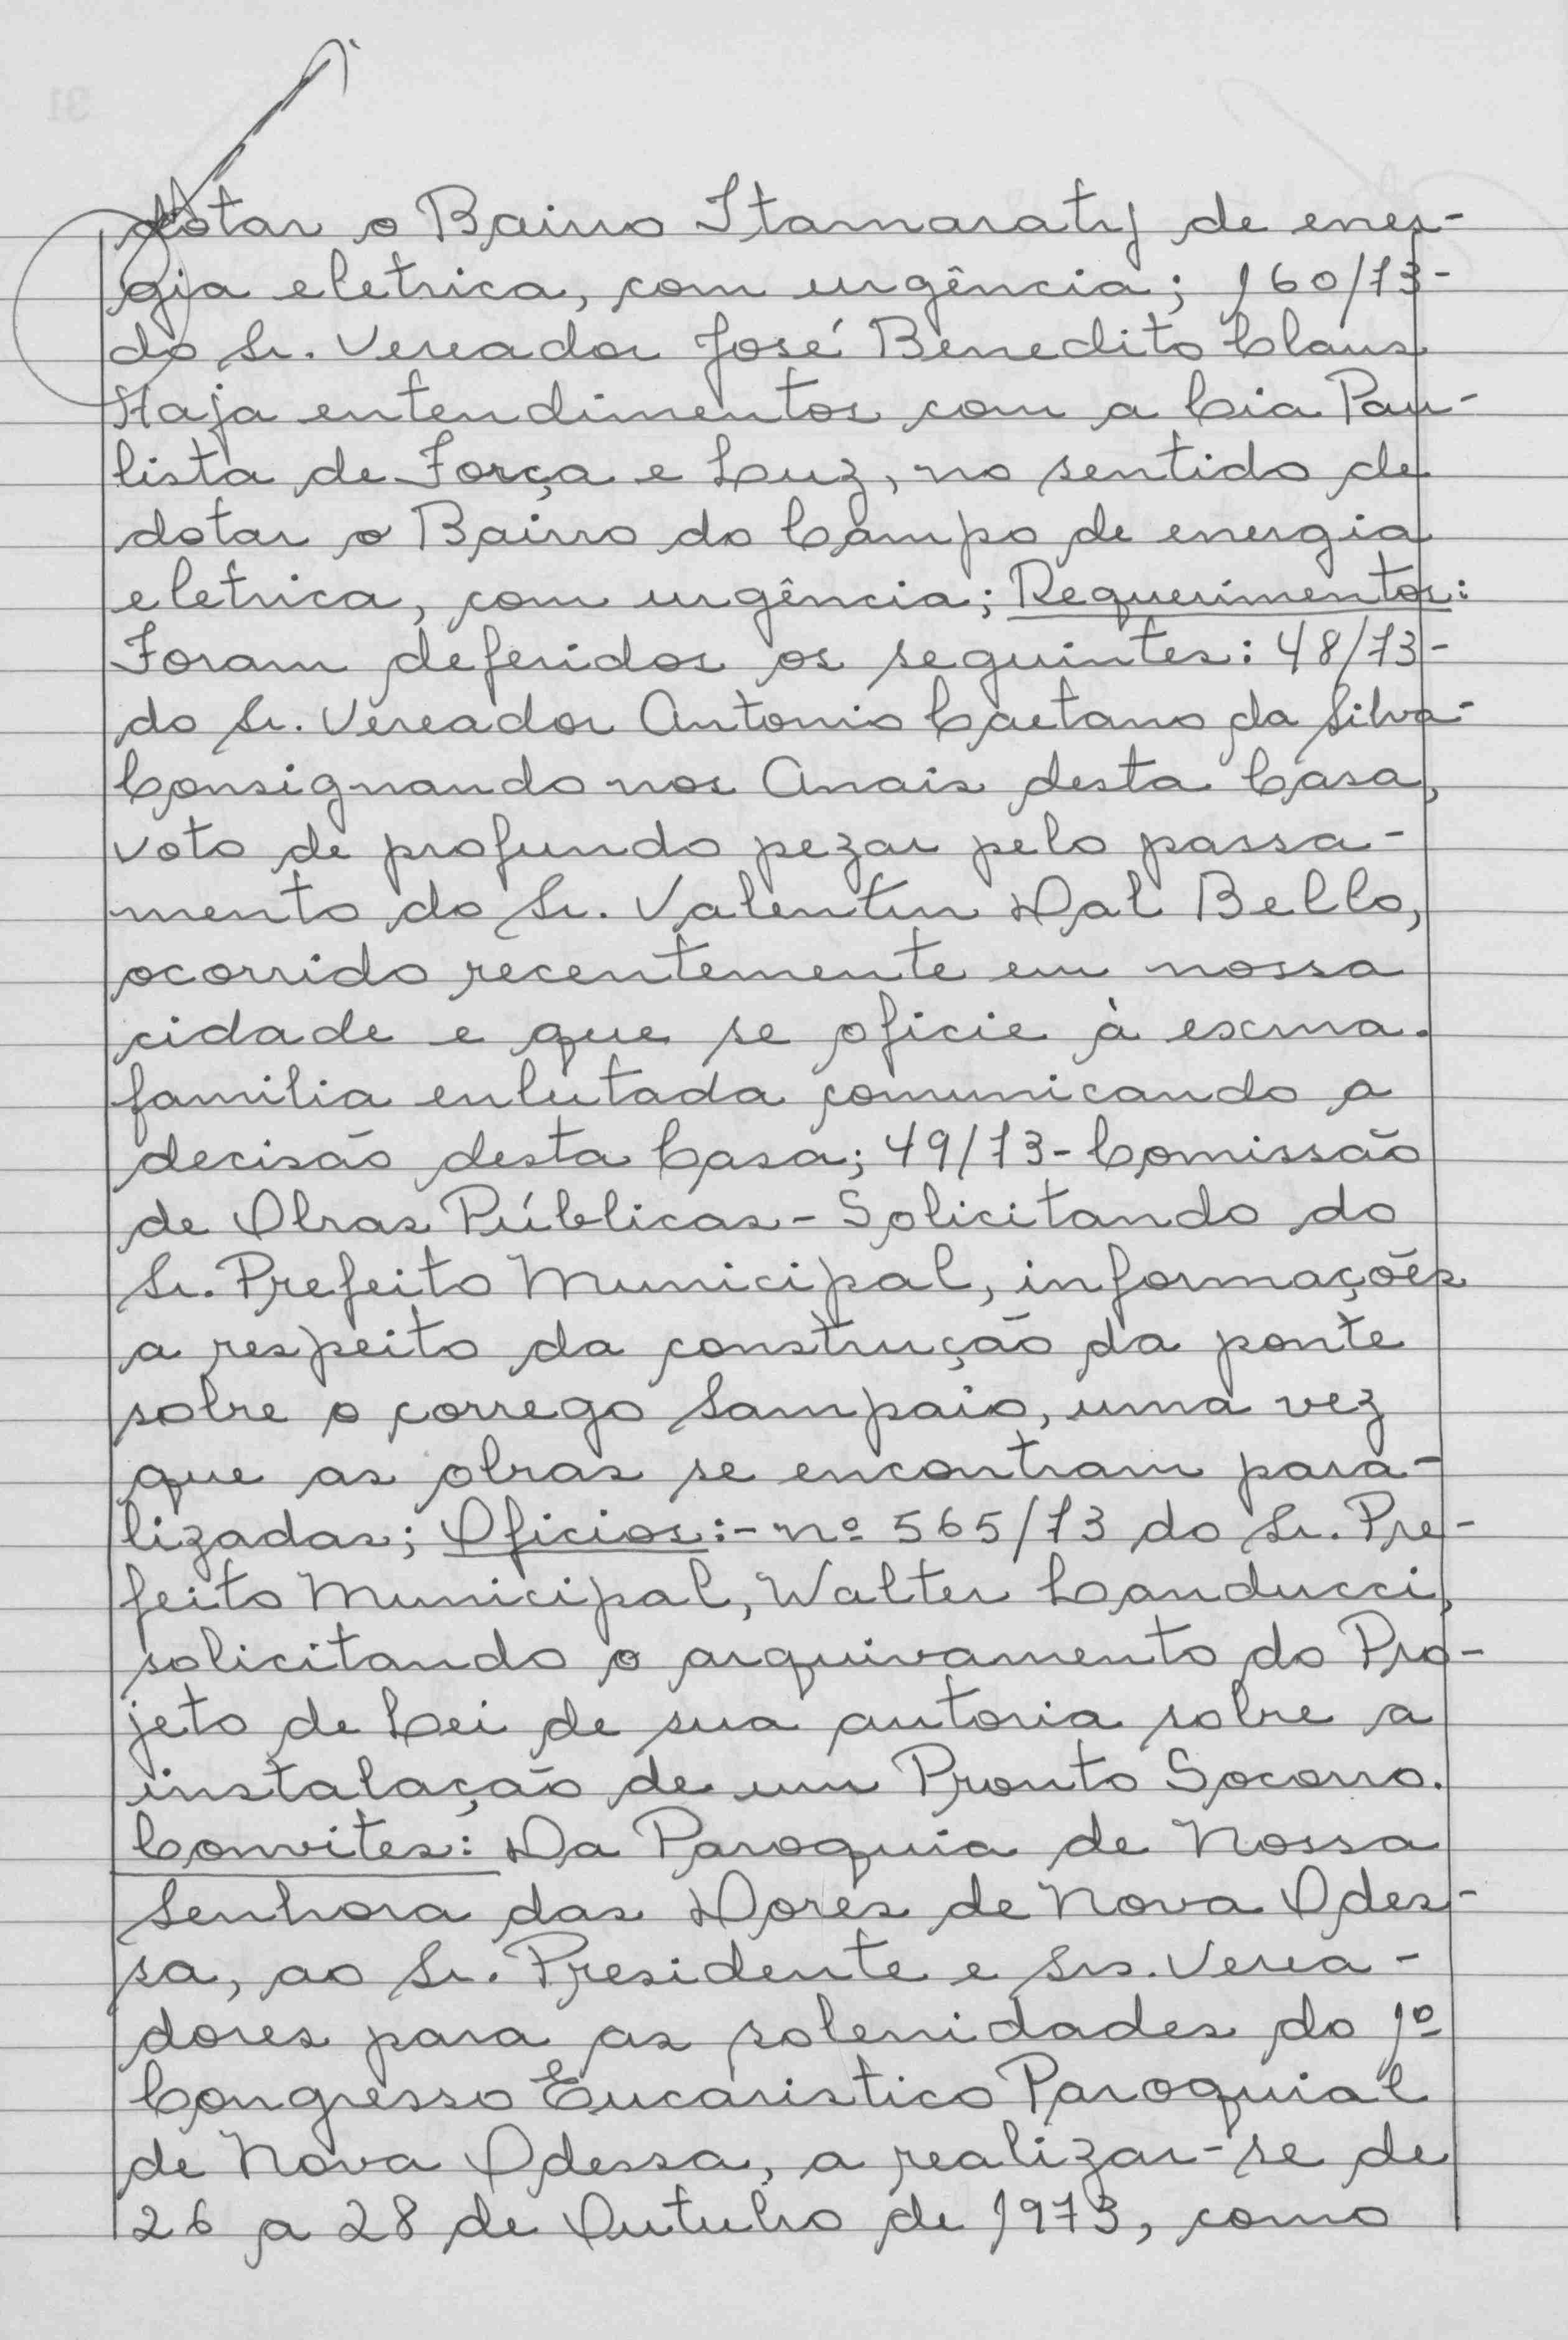 dotar o Bairro Itamaraty de ener-
gia eletrica, com urgência; 160/73-
do Sr. Vereador José Benedito Claus
Haja entendimentos com a Cia Pau-
lista de Força e Luz, no sentido de
dotar o Bairro do Campo de energia
eletrica, com urgência; Requerimentos:
Foram deferidos os seguintes: 48/73-
do Sr. Vereador Antonio Caetano da Silva-
Consignando nos Anais desta Casa,
voto de profundo pezar pelo passa-
mento do Sr. Valentin Dal Bello,
ocorrido recentemente em nossa
cidade e que se oficie à exma.
familia enlutada comunicando a
decisão desta Casa; 49/73- Comissão
de Obras Públicas - Solicitando do
Sr. Prefeito Municipal, informações
a respeito da construção da ponte
sobre o corrego Sampaio, uma vez
que as obras se encontram para-
lizadas; Oficios:- nº 565/73 do Sr. Pre-
feito Municipal, Walter Landucci,
solicitando o arquivamento do Pro-
jeto de Lei de sua autoria sobre a
instalação de um Pronto Socorro.
Convites: Da Paroquia de Nossa
Senhora das Dores de Nova Odes-
sa, ao Sr. Presidente e Srs. Verea-
dores para as solenidades do 1º
Congresso Eucaristico Paroquial
de Nova Odessa, a realizar-se de
26 a 28 de Outubro de 1973, como